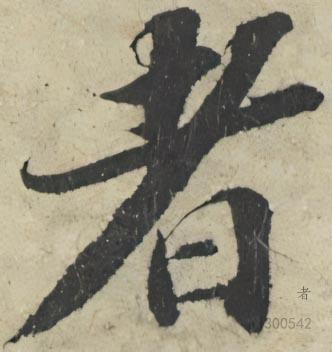 者
者
300542